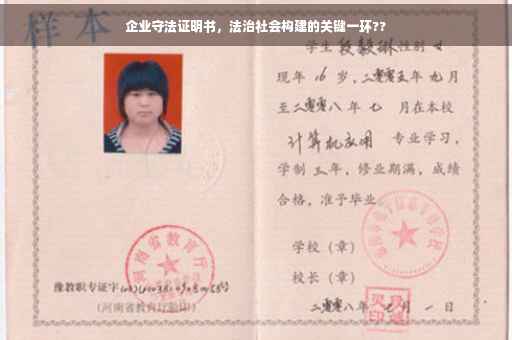 企业守法证明书，法治社会构建的关键一环??
样本
学生段毅琳性别女
现年16岁，二零零五年九月
至二零零八年七月在本校
计算机应用 专业学习，
学制三年，修业期满，成绩
合格，准予毕业。
学校（章）
校长（章）
二零零八年 月一日
河南省教育厅
豫教职专证字
（河南省教育厅验印）